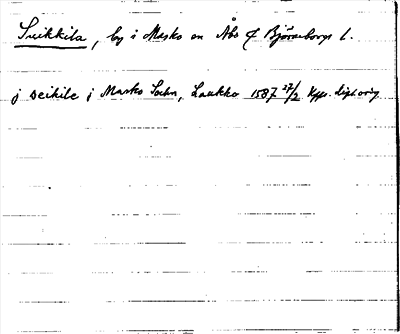 Seikkila, by i Masko sn Åbo & Björneborgs l.
j seikile j Masko Sokn, Laukko 1587 27/2 Kyps. dipl orig